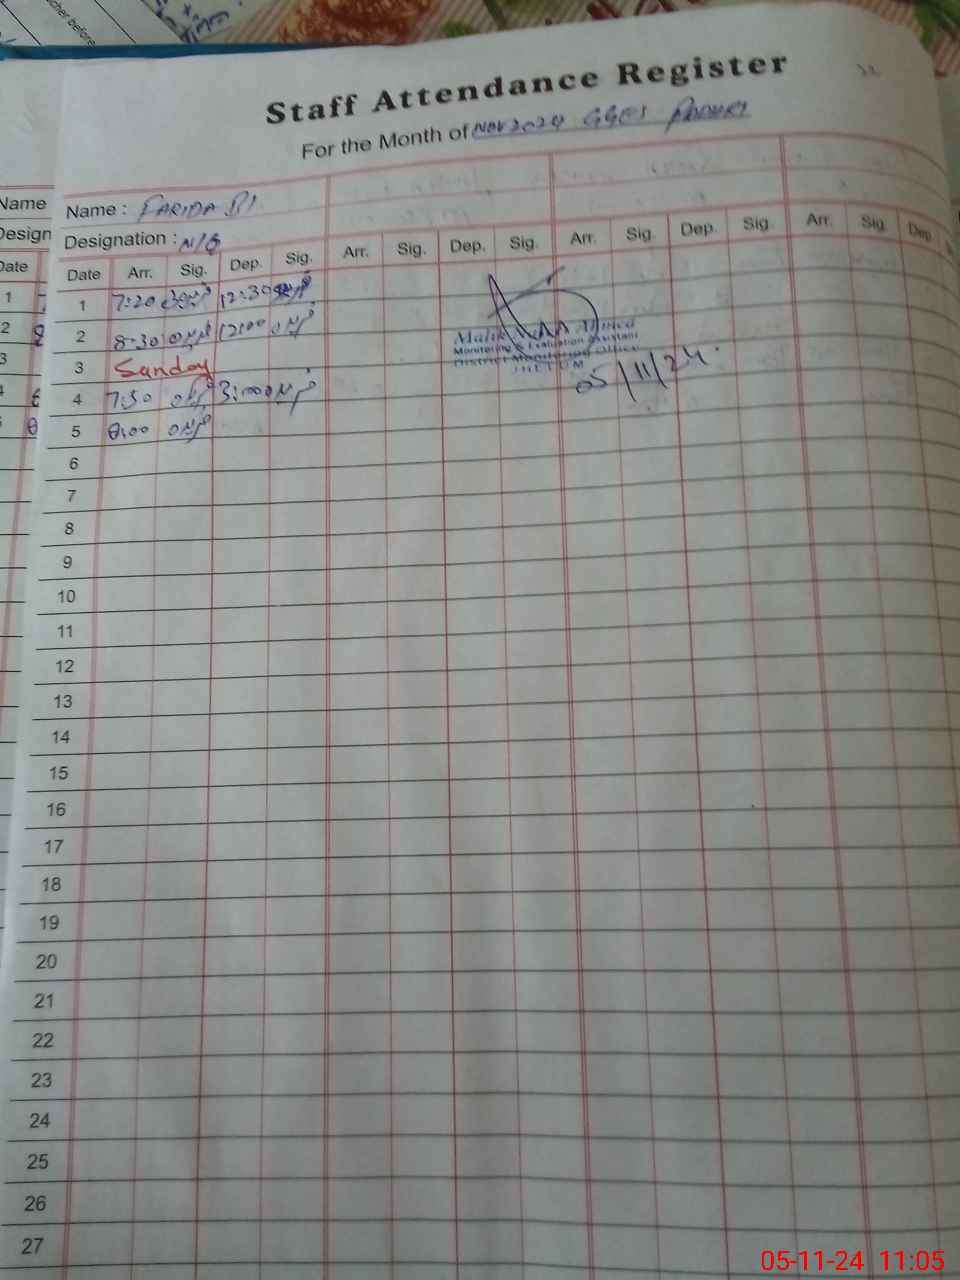 cher before
Staff Attendance Register
For the Month of Nov 2024 GGES
Name : FARIDA BI
Designation : N/Q
Date Arr. Sig. Dep. Sig. Arr. Sig. Dep. Sig. Arr. Sig. Dep. Sig. Arr. Sig. Dep.
1 7:20 12:30
2 8-30 12:00
3 Sunday
4 7:50 3:00
5 8:00
6
7
8
9
10
11
12
13
14
15
16
17
18
19
20
21
22
23
24
25
26
27
Malik Ahmed
Monitoring & Evaluation Assistant
District Monitoring Office
JHELUM
05/11/24.
Name
Design
Date
1
2
3
4
5
05-11-24 11:05